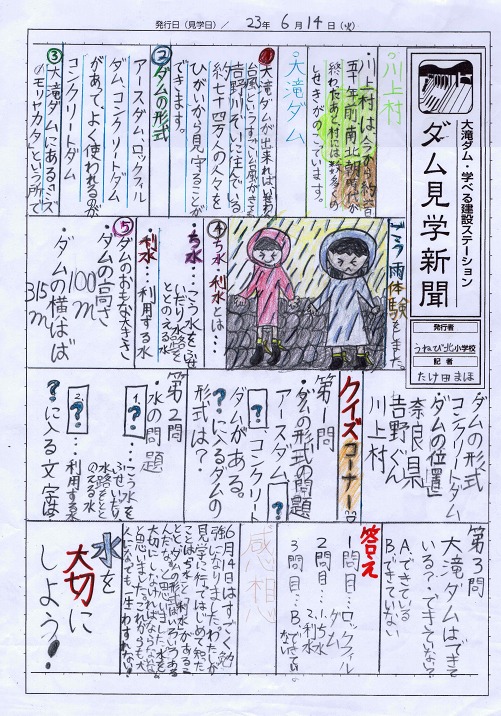 発行日（見学日）／ 23年 6月14日（火）
大滝ダム・学べる建設ステーション
ダム見学新聞
発行者
うねび北小学校
記者
たけ田まほ
川上村
・川上村は今から約
五十年前、南北朝時代が
終わたあと村には数多くの
しせきがのこています。
大滝ダム
①大滝ダムが出来れば、いせわん
台風というすごい台風がきても
吉野川ぞいに住んでいる
約七十四万人の人々を
ひがいから見守ることが
できます。
②ダムの形式
アースダム、ロックフィル
ダム、コンクリートダム
があって、よく使われるのが
コンクリートダム
③大滝ダムにあるミズ
「モリヤカタ」という所で
ごう雨体験をしました
④ち水・利水とは…
・ち水…こう水をふせ
いだり水路を
ととのえる水
・利水…利用する水
⑤ダムのおもな大きさ
・ダムの高さ
100m
・ダムの横はば
315m
ダムの形式
コンクリートダム
ダムの位置
奈良県
吉野ぐん
川上村
クイズコーナー
第1問
・ダムの形式の問題
アースダム
？コンクリート
ダムがある。
？に入るダムの
形式は？
第2問
・水の問題
1.？…こう水を
ふせいだり
水路をとと
のえる水
2.？…利用する水
？に入る文字は？
第3問
大滝ダムはできて
いる？・できていない？
A.できている
B.できていない
答え
1問目…ロックフィル
ダム
2問目…1.ち水
2.利水
3問目…B.でき
ていない
感想
6月14日はすごく勉
強になりました。わたしが
見学に行ってはじめて知た
ことは、ち水と利水があるこ
とと、ダムの形式がいろいろある
水を
大切に
しよう！